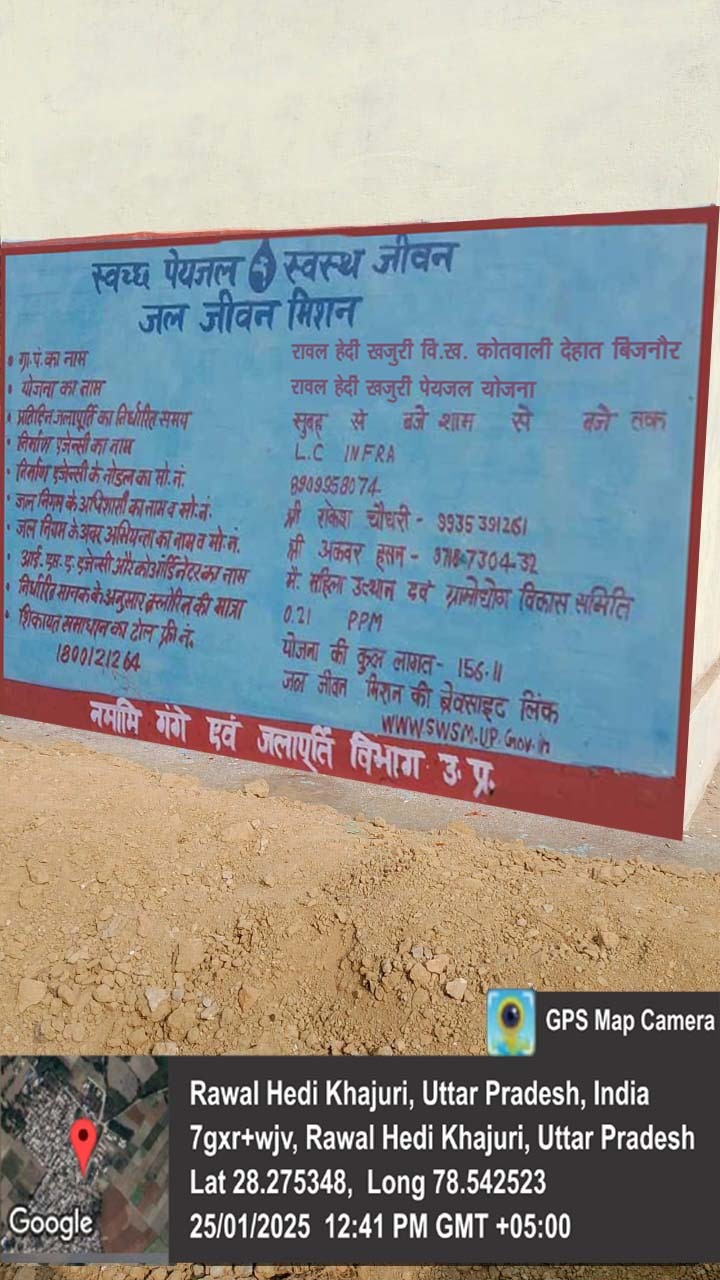 स्वच्छ पेयजल स्वस्थ जीवन
जल जीवन मिशन
• ग्रा.पं.का नाम रावल हेदी खजुरी वि.ख. कोतवाली देहात बिजनौर
• योजना का नाम रावल हेदी खजुरी पेयजल योजना
• प्रतिदिन जलापूर्ति का निर्धारित समय सुबह से बजे शाम से बजे तक
• निर्माण एजेन्सी का नाम L.C INFRA
• निर्माण एजेन्सी के नोडल का मो.नं. 8909958074
• जल निगम के अधिशासी का नाम व मो.नं. श्री राकेश चौधरी - 9935391261
• जल निगम के अवर अभियन्ता का नाम व मो.नं. श्री अकवर हसन - 9718-7304-32
• आई.एस.ए.एजेन्सी और कोऑर्डिनेटर का नाम मै. महिला उत्थान एवं ग्रामोद्योग विकास समिति
• निर्धारित मानक के अनुसार क्लोरिन की मात्रा 0.21 PPM
• शिकायत समाधान का टोल फ्री नं. योजना की कुल लागत - 156.11
1800121264 जल जीवन मिशन की बेवसाइट लिंक
WWW.SWSM-UP.Gov.in
नमामि गंगे एवं जलापूर्ति विभाग उ.प्र.
GPS Map Camera
Rawal Hedi Khajuri, Uttar Pradesh, India
7gxr+wjv, Rawal Hedi Khajuri, Uttar Pradesh
Lat 28.275348, Long 78.542523
25/01/2025 12:41 PM GMT +05:00
Google